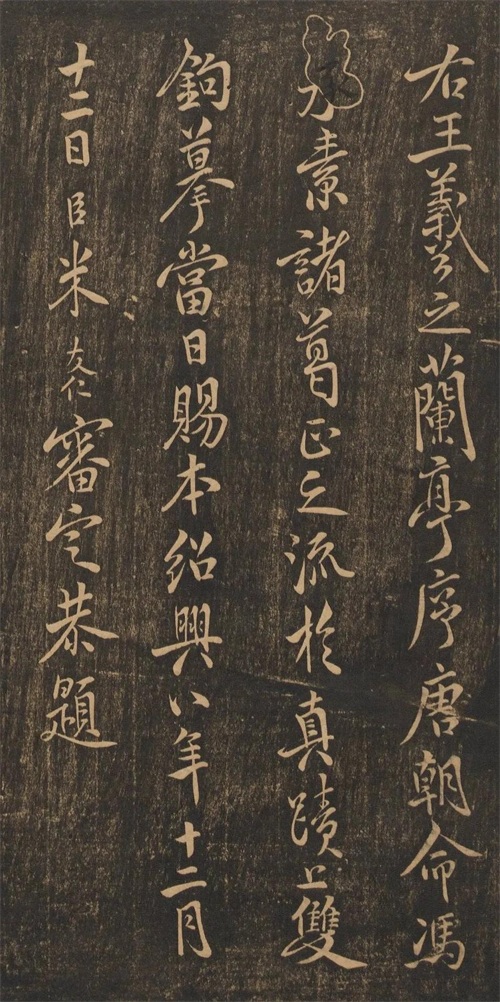 右王羲之蘭亭序唐朝命馮
素諸葛正之流於真蹟上雙
鉤摹當日賜本紹興八年十二月
十二日臣米友仁審定恭題